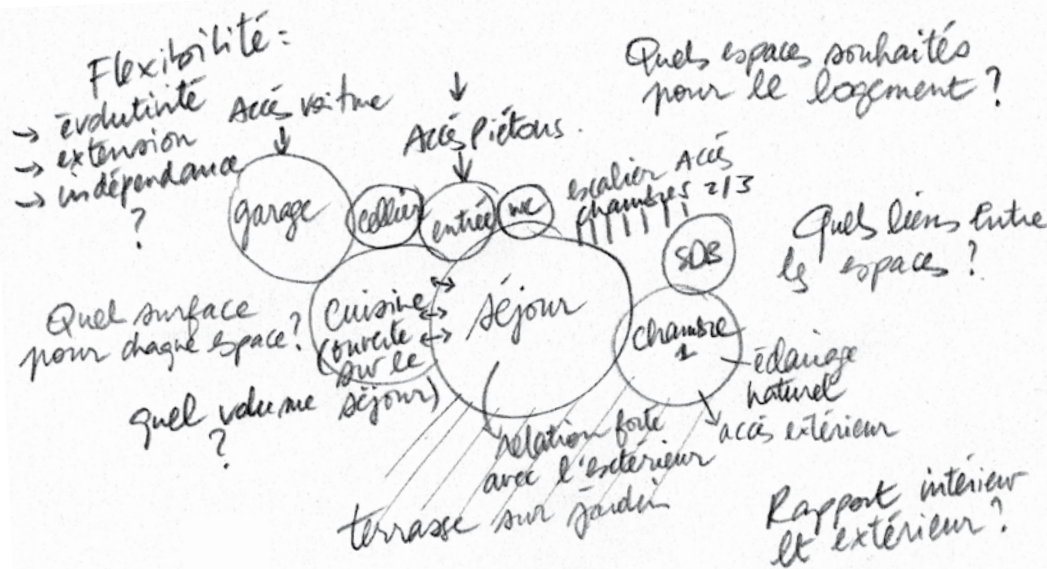 Flexibilité :
→ évolutivité
→ extension
→ indépendance
?
Accès voiture
Accès Piétons.
Quels espaces souhaités
pour le logement ?
escalier Accès
chambres 2/3
garage
cellier
entrée
wc
SDB
Quels liens entre
les espaces ?
Quel surface
pour chaque espace ?
cuisine
(ouverte
sur le
séjour)
séjour
chambre
1
éclairage
naturel
accès extérieur
quel volume
?
relation forte
avec l'extérieur
terrasse sur jardin
Rapport intérieur
et extérieur ?